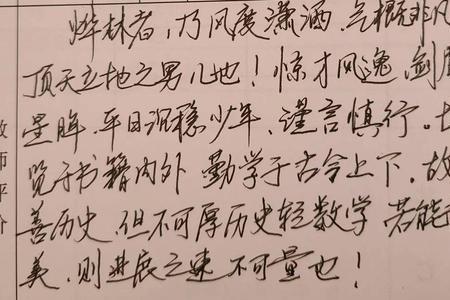 烨林者,乃风度潇洒,气概非凡
顶天立地之男儿也!惊才风逸,剑眉
星眸,平日沉稳少年,谨言慎行。博
览于书籍内外 勤学于古今上下,故
善历史,但不可厚历史轻数学 若能
美,则进展之速 不可量也!
师评